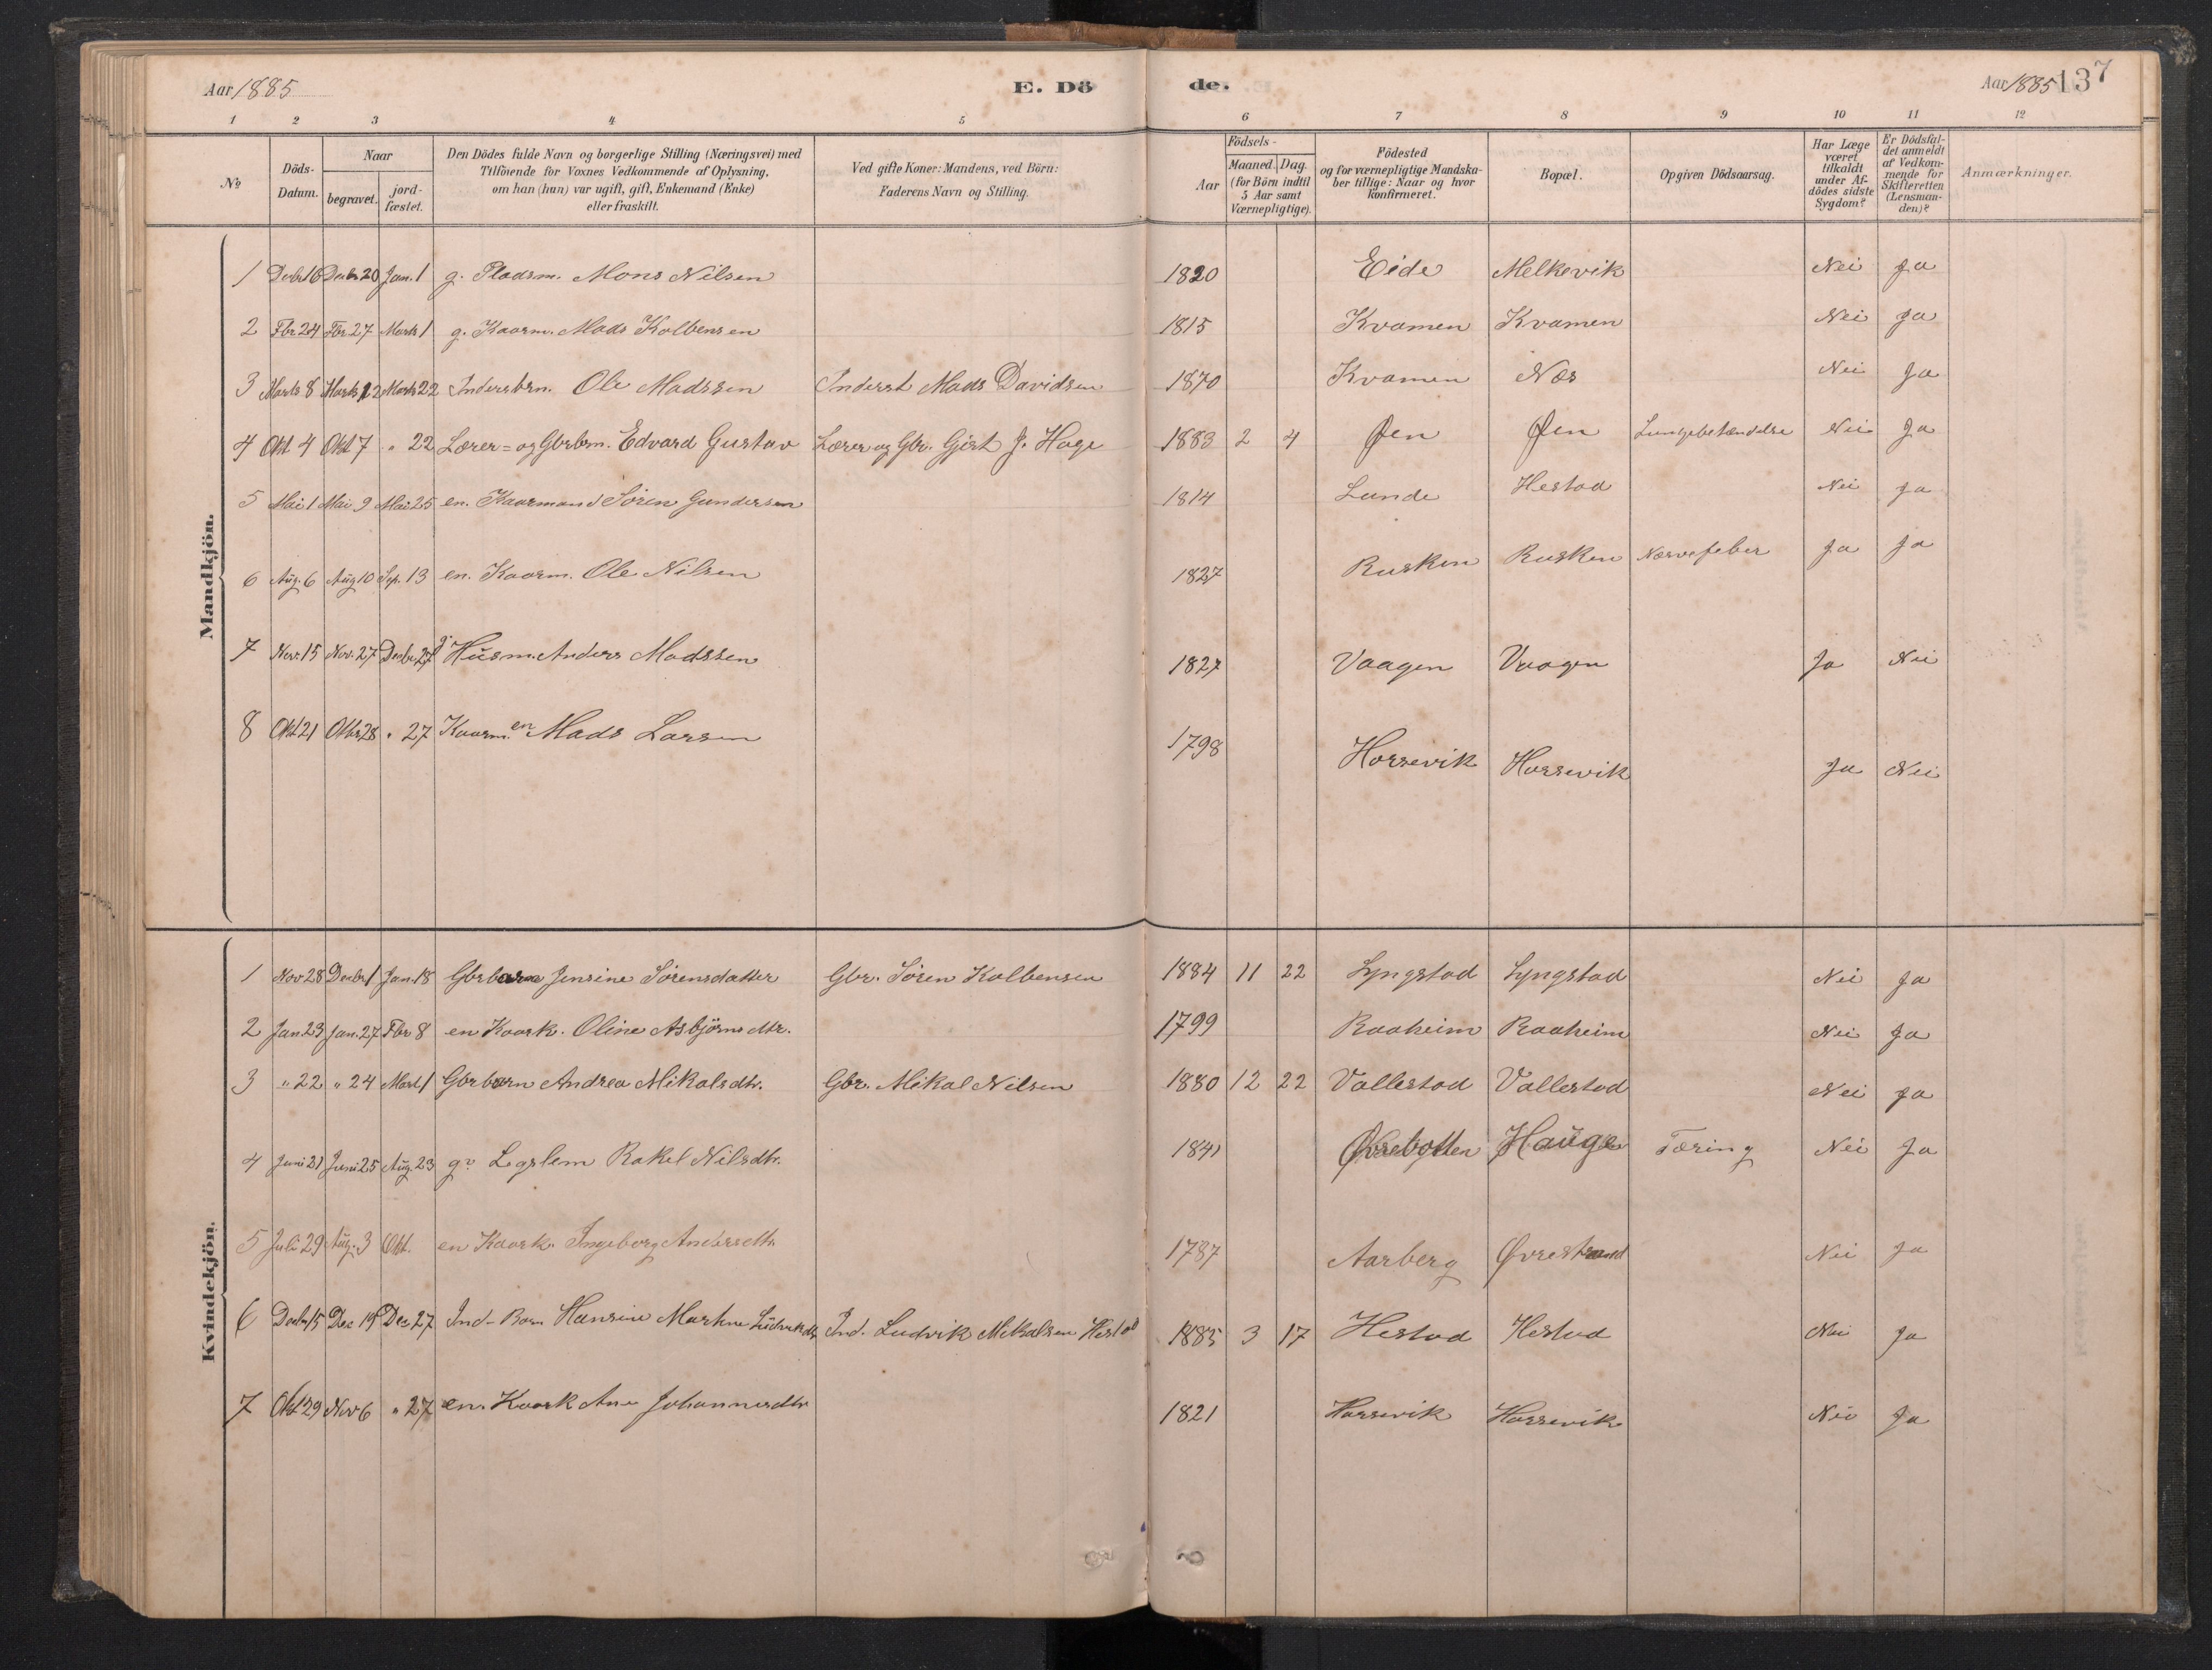 Aar 1885 E. Dö de. Aar 1885 137
1 2 3 4 5 6 7 8 9 10 11 12
№ Döds-Datum. Naar begravet. jord-fæstet. Den Dödes fulde Navn og borgerlige Stilling (Næringsvei) med Tilföiende for Voxnes Vedkommende af Oplysning, om han (hun) var ugift, gift, Enkemand (Enke) eller fraskilt. Ved gifte Koner: Mandens, ved Börn: Faderens Navn og Stilling. Födsels- Aar Maaned. Dag. (for Börn indtil 5 Aar samt Værnepligtige). Födested og for værnepligtige Mandskaber tillige: Naar og hvor konfirmeret. Bopæl. Opgiven Dödsaarsag. Har Læge været tilkaldt under Afdödes sidste Sygdom? Er Dödsfaldet anmeldt af Vedkommende for Skifteretten (Lensmanden)? Anmærkninger.
Mandkjön.
1 Decbr 16 Decbr 20 Jan. 1 g. Pladsm. Mons Nilsen 1820 Eide Melkevik Nei Ja
2 Fbr 24 Fbr 27 Marts 1 g. Kaarm. Mads Kolbensen 1815 Kvamen Kvamen Nei Ja
3 Marts 8 Marts 12 Marts 22 Indersbrn. Ole Madssen Inderst Mads Davidsen 1870 Kvamen Næs Nei Ja
4 Okt 4 Okt 7 " 22 Lærer= og Gbrbrn. Edvard Gustav Lærer og Gbr. Gjert J. Hage 1883 2 4 Øen Øen Lungebetændelse Nei Ja
5 Mai 1 Mai 9 Mai 25 en. Kaarmand Sören Gundersen 1814 Lunde Hestad Nei Ja
6 Aug. 6 Aug 10 Sep. 13 en. Kaarm. Ole Nilsen 1827 Rusken Rusken Nervefeber Ja Ja
7 Nov. 15 Nov. 27 Decbr. 27 g. Husm. Anders Madssen 1827 Vaagen Vaagen Ja Nei
8 Okt 21 Oktbr 28 " 27 Kaarm. en. Mads Larsen 1798 Horsevik Horsevik Ja Nei
Kvindekjön.
1 Nov 28 Decbr 1 Jan. 18 Gbrbarn Jensine Sörensdatter Gbr. Sören Kolbensen 1884 11 22 Lyngstad Lyngstad Nei Ja
2 Jan 23 Jan. 27 Fbr 8 en Kaark. Oline Asbjörns dtr. 1799 Raaheim Raaheim Nei Ja
3 " 22 " 24 Mart 1 Gbrbarn Andrea Mikalsdtr. Gbr. Mikal Nilsen 1880 12 22 Vallestad Vallestad Nei Ja
4 Juni 21 Juni 25 Aug. 23 g. Legslem Rakel Nilsdtr. 1841 Øvrebotten Hauge Tæring Nei Ja
5 Juli 29 Aug. 3 Okt. en Kaark. Ingeborg Andersdtr. 1787 Aarberg Øvrestrand Nei Ja
6 Decbr 15 Dec 19 Dec 27 Ind- Barn Hansine Martine Ludviksdtr Ind. Ludvik Mikalsen Hestad 1885 3 17 Hestad Hestad Nei Ja
7 Okt 29 Nov 6 " 27 en. Kaark Ane Johannesdtr 1821 Horsevik Horsevik Nei Ja